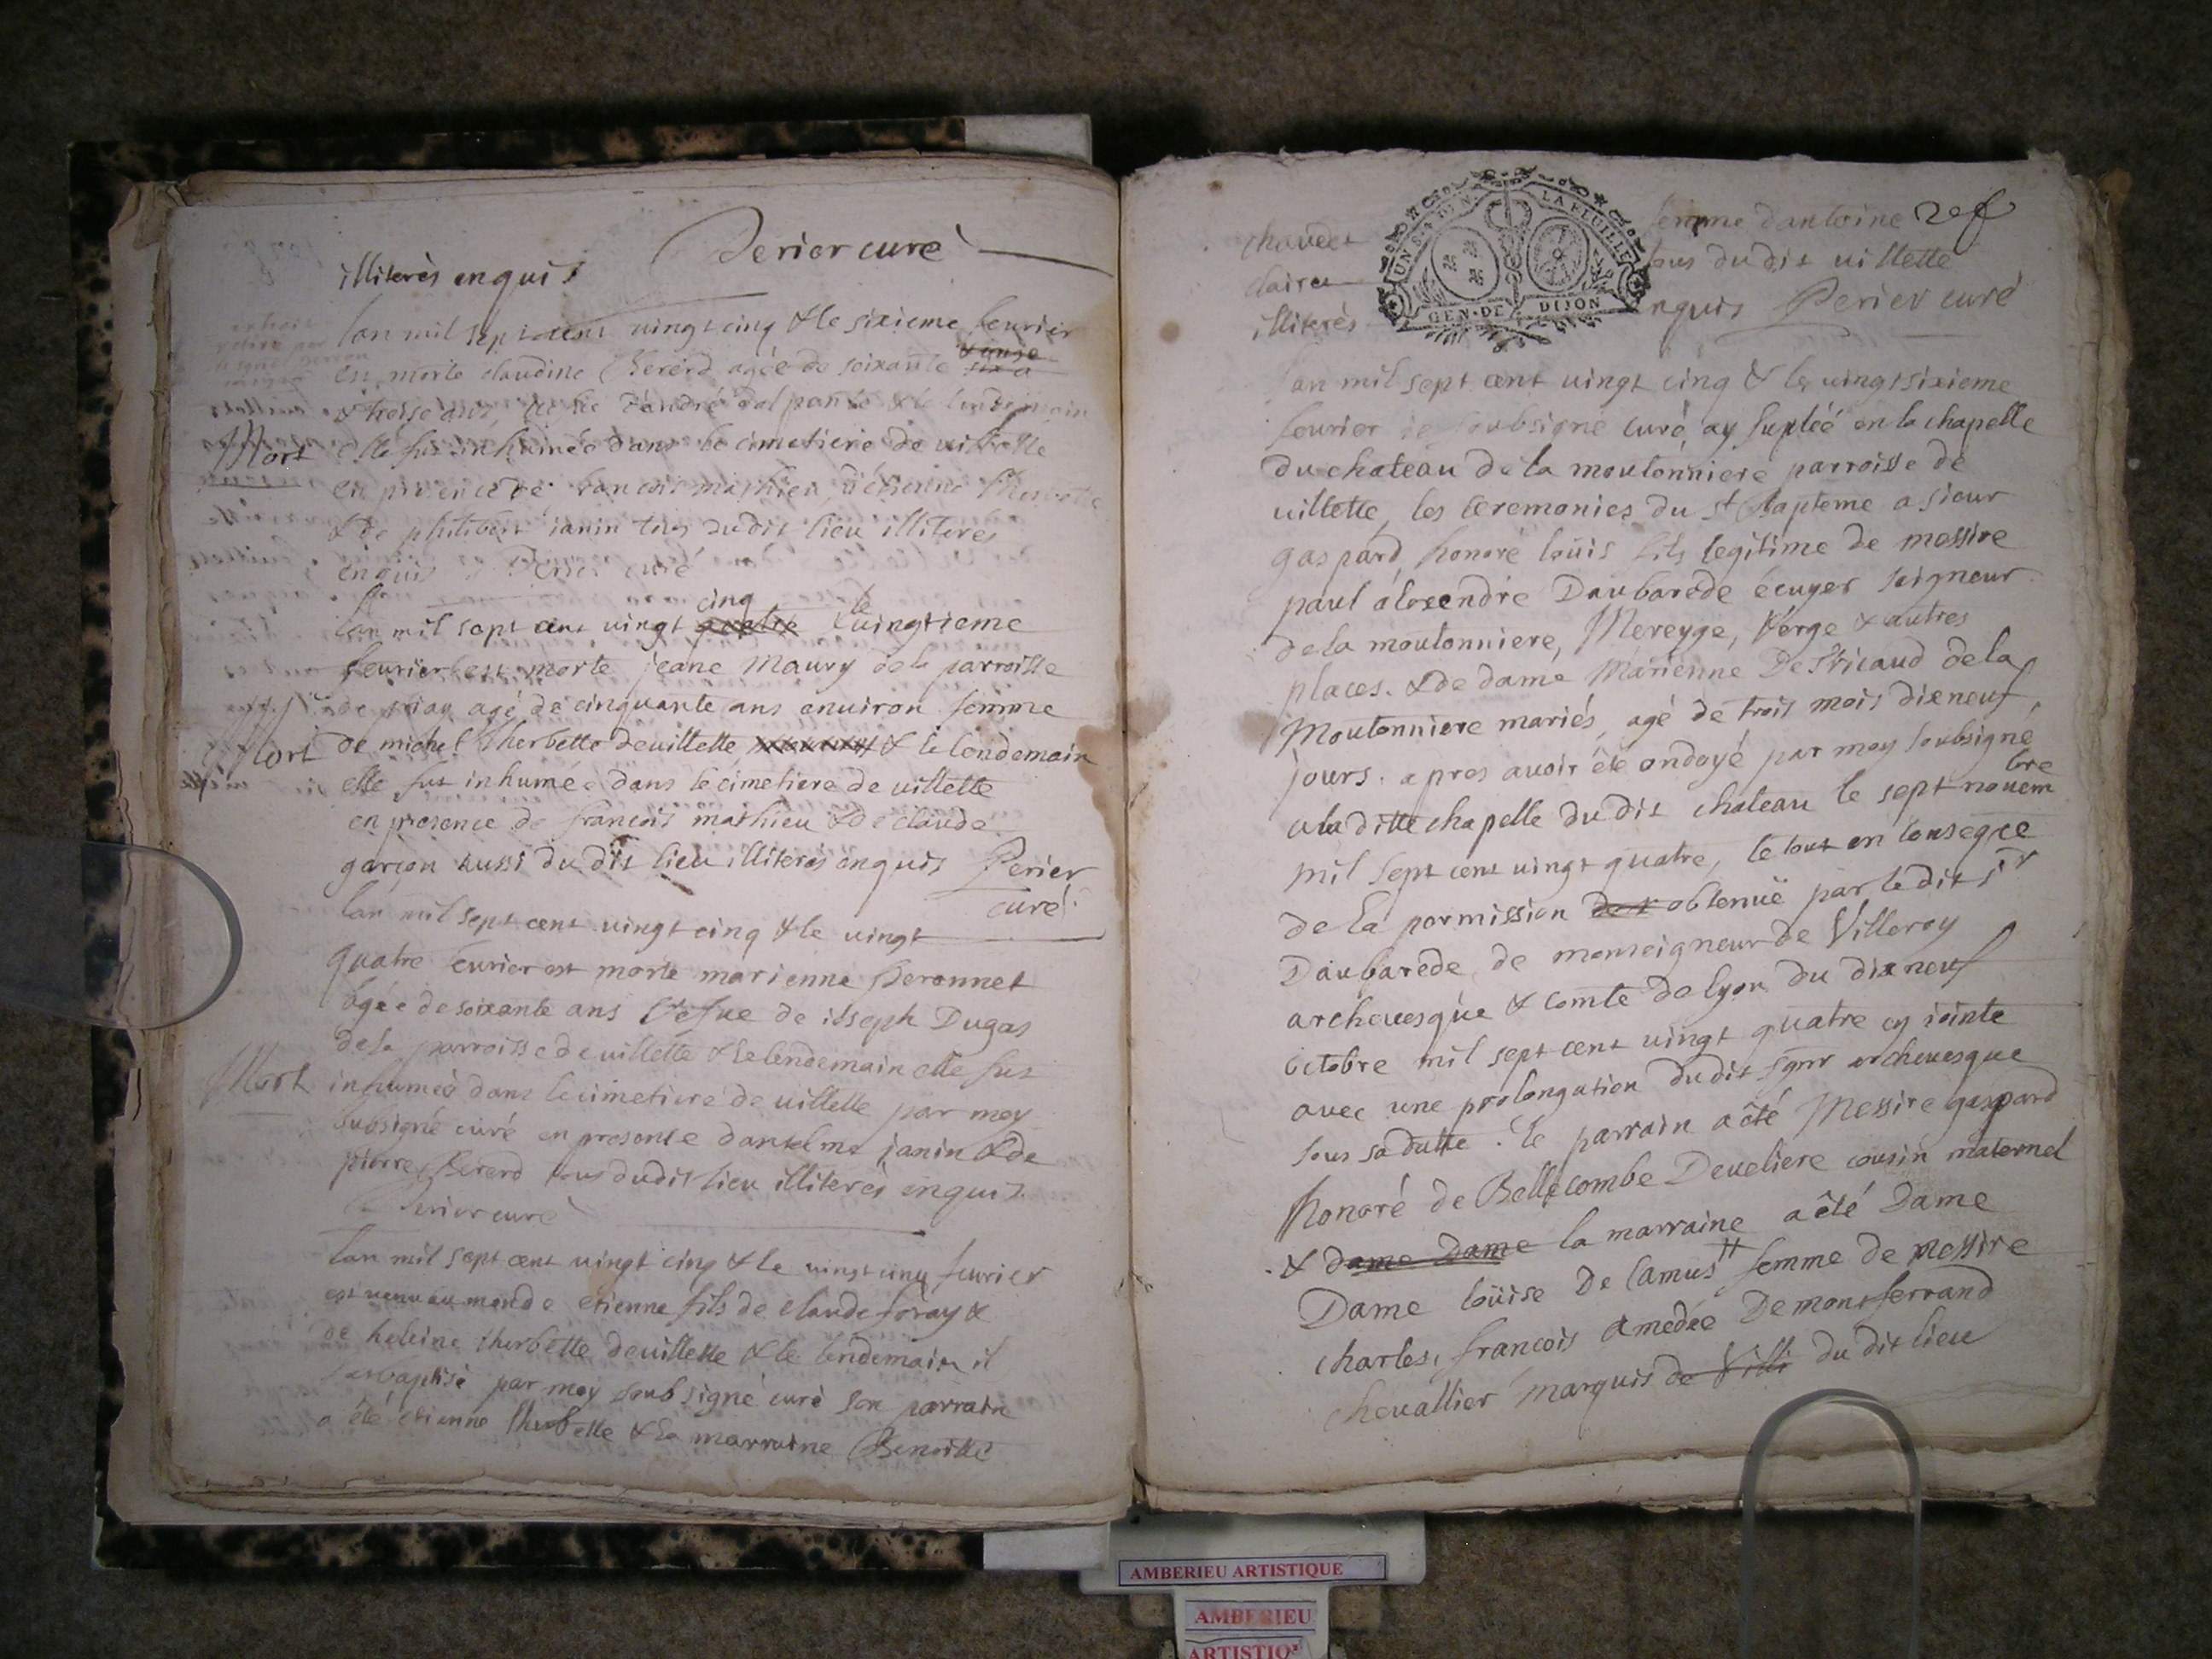 Perier curé
illiterés enquis
lan mil sept cent uingt cinq & le sixieme feurier
est morte claudine Berérd agée de soixante
& treise ans,
Mort
elle fut inhumée dans le cimetiere de uillette
en presence de francois mathieu, d'étienne therbette
& de philibert ianin tous dudit lieu illiterés
enquis Perier curé
lan mil sept cent uingt quatre cinq le uingtieme
feurier est morte jeane Maury de la parroisse
de priay agé de cinquante ans enuiron femme
Mort
de michel therbette de uillette & le lendemain
elle fut inhumée dans le cimetiere de uillette
en presence de francois mathieu & de claude
garçon aussi du dit lieu illiterés enquis Perier
curé
lan mil sept cent uingt cinq & le uingt
quatre feurier est morte marienne Peronnet
agée de soixante ans vefue de ioseph Dugas
de la parroisse de uillette & le lendemain elle fut
Mort
inhumée dans le cimetiere de uillette par moy
subsigné curé en presence danthelme janin & de
pierre Bererd tous dudit lieu illiterés enquis
Perier curé
lan mil sept cent uingt cinq & le uingt cinq feurier
est uenu au monde etienne fils de claude foray &
de heleine therbette de uillette & le lendemain il
fut baptisé par moy soubsigné curé son parrain
a été etienne therbette & la marraine Benoitte
chaudet
femme dantoine
claire
tous dudit uillette
illiterés
enquis Perier curé
UN S. 4 DEN. LA FEUILLE
GEN. DE DIJON
lan mil sept cent uingt cinq & le uingt sixieme
feurier ie soubsigné curé ay supleé en la chapelle
du chateau de la moutonniere parroisse de
uillette, les ceremonies du st Bapteme a sieur
gaspard, honoré loüis fils legitime de messire
paul alexendre Daubarede écuyer seigneur
de la moutonniere, Mereyge, Verge & autres
places. & de dame Marienne De Tricaud de la
Moutonniere mariés, agé de trois mois dixneuf
jours. apres auoir été ondoyé par moy soubsigné
a la ditte chapelle du dit chateau le sept nouembre
mil sept cent uingt quatre, le tout en conseqce
de la permission de r obtenuë par le dit sr
Daubarede de monseigneur de Villeroy
archeuesque & comte de lyon du dixneuf
octobre mil sept cent uingt quatre cy iointe
auec une prolongation dudit sgnr archeuesque
sous sa datte. le parrain a êté Messire gaspard
honoré de Bellecombe Deueliere cousin maternel
& dame Dame la marraine a êté Dame
Dame loüise De Camus femme de messire
charles, francois Amedée De montferrand
cheuallier marquis de Villi du dit lieu
AMBERIEU ARTISTIQUE
AMBERIEU
ARTISTIQ